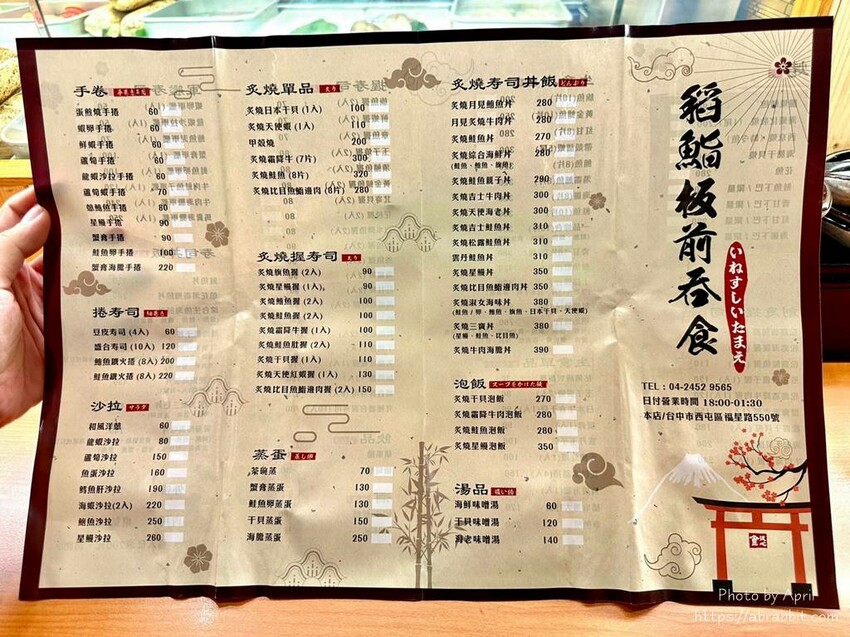 手卷
蛋煎燒手捲 60
蝦卵手捲 60
鮮蝦手捲 60
蘆筍手捲 60
龍蝦沙拉手捲 60
蘆筍蝦手捲 70
鮑魚手捲 80
星鰻手捲 90
蟹膏手捲 90
鮭魚卵手捲 100
蟹膏海膽手捲 220
捲寿司
豆皮寿司 (4入) 60
盛合寿司 (10入) 120
鮪魚鐵火捲 (8入) 200
鮭魚鐵火捲 (8入) 220
沙拉 サラダ
和風洋蔥 60
龍蝦沙拉 80
蘆筍沙拉 150
魚蛋沙拉 160
鱈魚肝沙拉 190
海蝦沙拉(2入) 220
鮑魚沙拉 250
星鰻沙拉 260
炙燒單品 炙り
炙燒日本干貝 (1入) 100
炙燒天使蝦 (1入) 110
甲殼燒 200
炙燒霜降牛 (7片) 300
炙燒鮭魚 (8片) 320
炙燒比目魚鰭邊肉 (8片) 280
炙燒握寿司 炙り
炙燒旗魚握 (2入) 90
炙燒星鰻握 (1入) 90
炙燒鮪魚握 (2入) 100
炙燒鮭魚握 (2入) 100
炙燒霜降牛握 (1入) 100
炙燒鮭魚肚握 (2入) 110
炙燒干貝握 (1入) 110
炙燒天使紅蝦握 (1入) 130
炙燒比目魚鰭邊肉握 (2入) 150
蒸蛋 蒸し卵
茶碗蒸 70
蟹膏蒸蛋 130
鮭魚卵蒸蛋 130
干貝蒸蛋 150
海膽蒸蛋 250
炙燒寿司丼飯 どんぶり
炙燒月見鮪魚丼 280
月見炙燒牛肉丼 280
炙燒鮭魚丼 270
炙燒綜合海鮮丼 280
(鮭魚、鮪魚、旗魚)
炙燒鮭魚親子丼 290
炙燒吉士牛肉丼 300
炙燒天使海老丼 300
炙燒吉士鮭魚丼 310
炙燒松露鮭魚丼 310
雲丹鮭魚丼 310
炙燒星鰻丼 350
炙燒比目魚鰭邊肉丼 350
炙燒淑女海味丼 380
(鮭魚/卵、鮪魚、旗魚、日本干貝、天使蝦)
炙燒三寶丼 380
(星鰻、鮭魚、比目魚)
炙燒牛肉海膽丼 390
泡飯 スープをかけた飯
炙燒干貝泡飯 270
炙燒霜降牛肉泡飯 280
炙燒鮭魚泡飯 280
炙燒星鰻泡飯 350
湯品
海鮮味噌湯 60
干貝味噌湯 120
海老味噌湯 140
稻鮨板前吞食
いねすしいたまえ
TEL : 04-2452 9565
日付營業時間 18:00-01:30
本店/台中市西屯區福星路550號
Photo by April
https://abrabbit.com